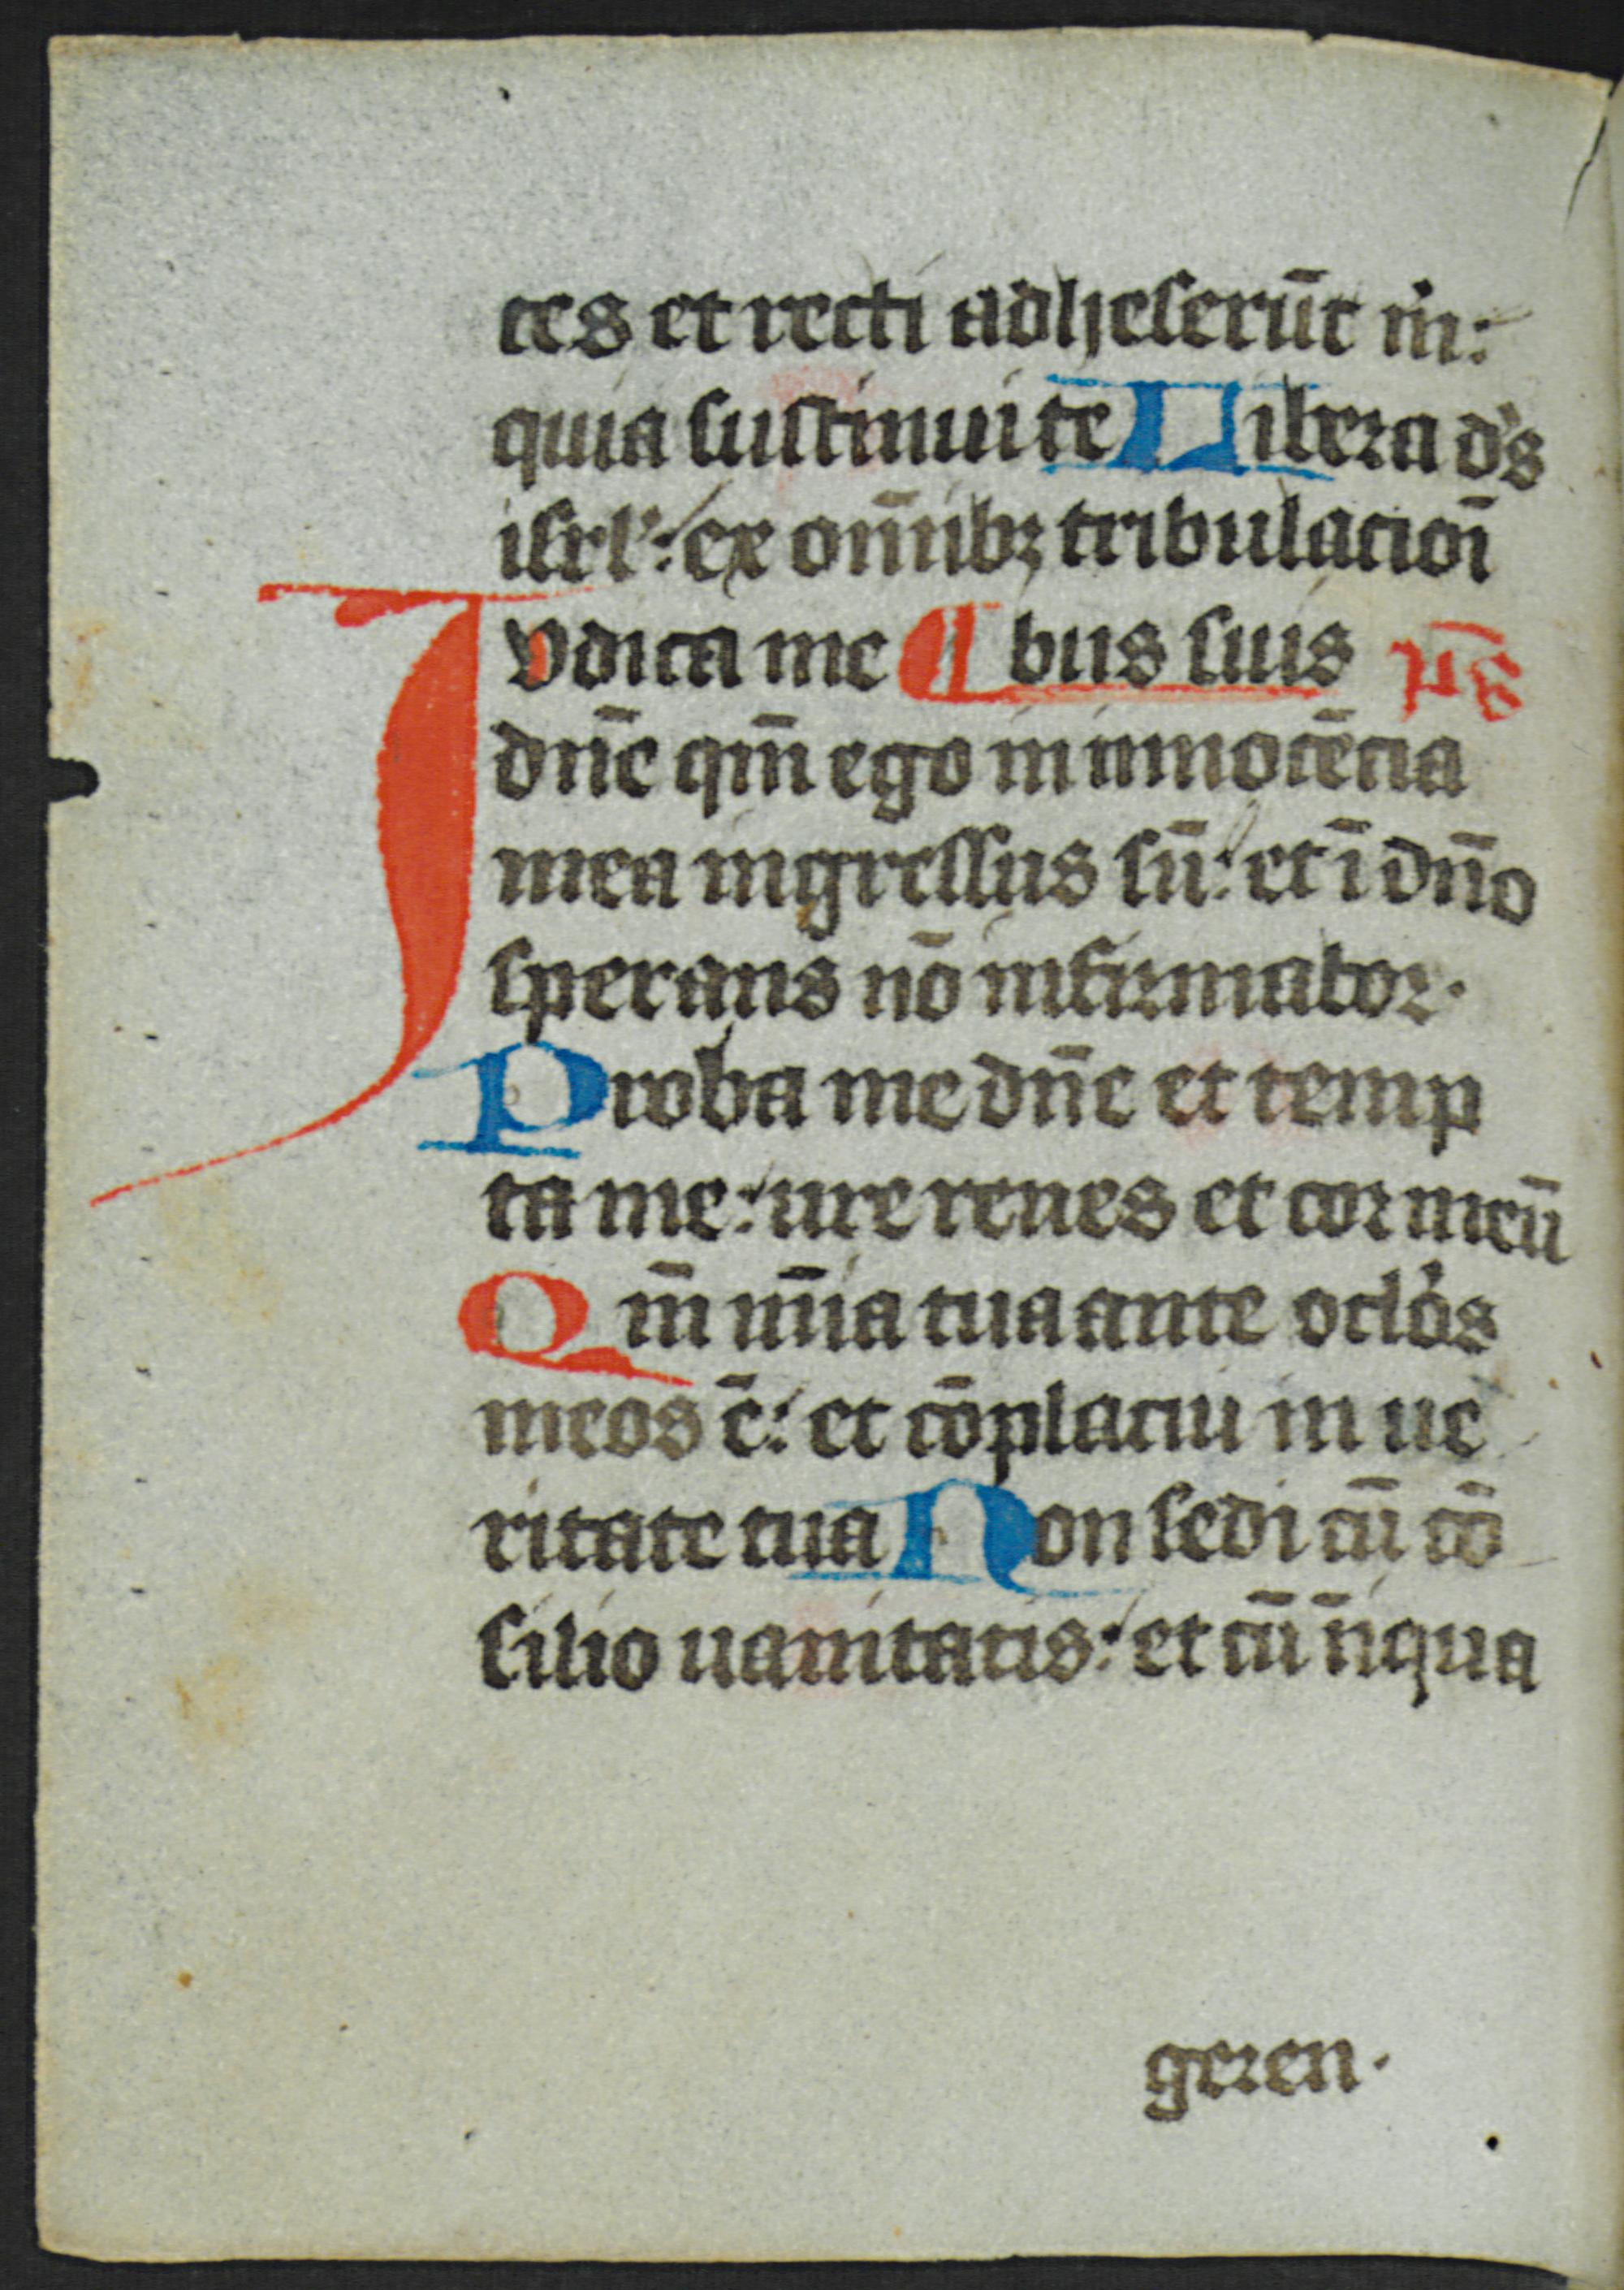 tes et recti adheserūt m̄:
quia sustinui te Libera d's
isrl': ex om̄ibꝫ tribulacioī
Judica me ¶ bus suis ps̄
dn̄e qm̄ ego in innocētia
mea ingressus sū: et ī dn̄o
sperans nō infirmabor.
Proba me dn̄e et temp
ta me: ure renes et cor meū
Qm̄ mīa tua ante oclōs
meos ē: et cōplacui in ue
ritate tua Non sedi cū cō
silio uanitatis: et cū īiqua
geren.